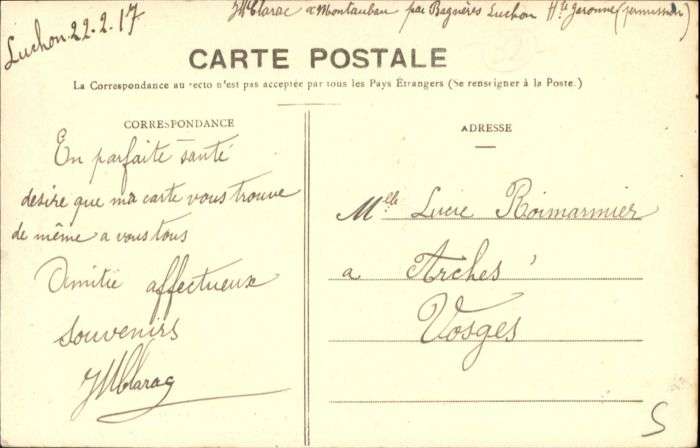 Luchon 22-2-17
JMClarac a Montauban par Bagnères Luchon Hte Garonne (permission)
CARTE POSTALE
La Correspondance au recto n'est pas acceptée par tous les Pays Étrangers (Se renseigner à la Poste.)
CORRESPONDANCE
En parfaite santé
désire que ma carte vous trouve
de même a vous tous
Amitié affectueux
souvenirs
JMClarac
ADRESSE
Melle Lucie Roimarmier
a Arches
Vosges
S